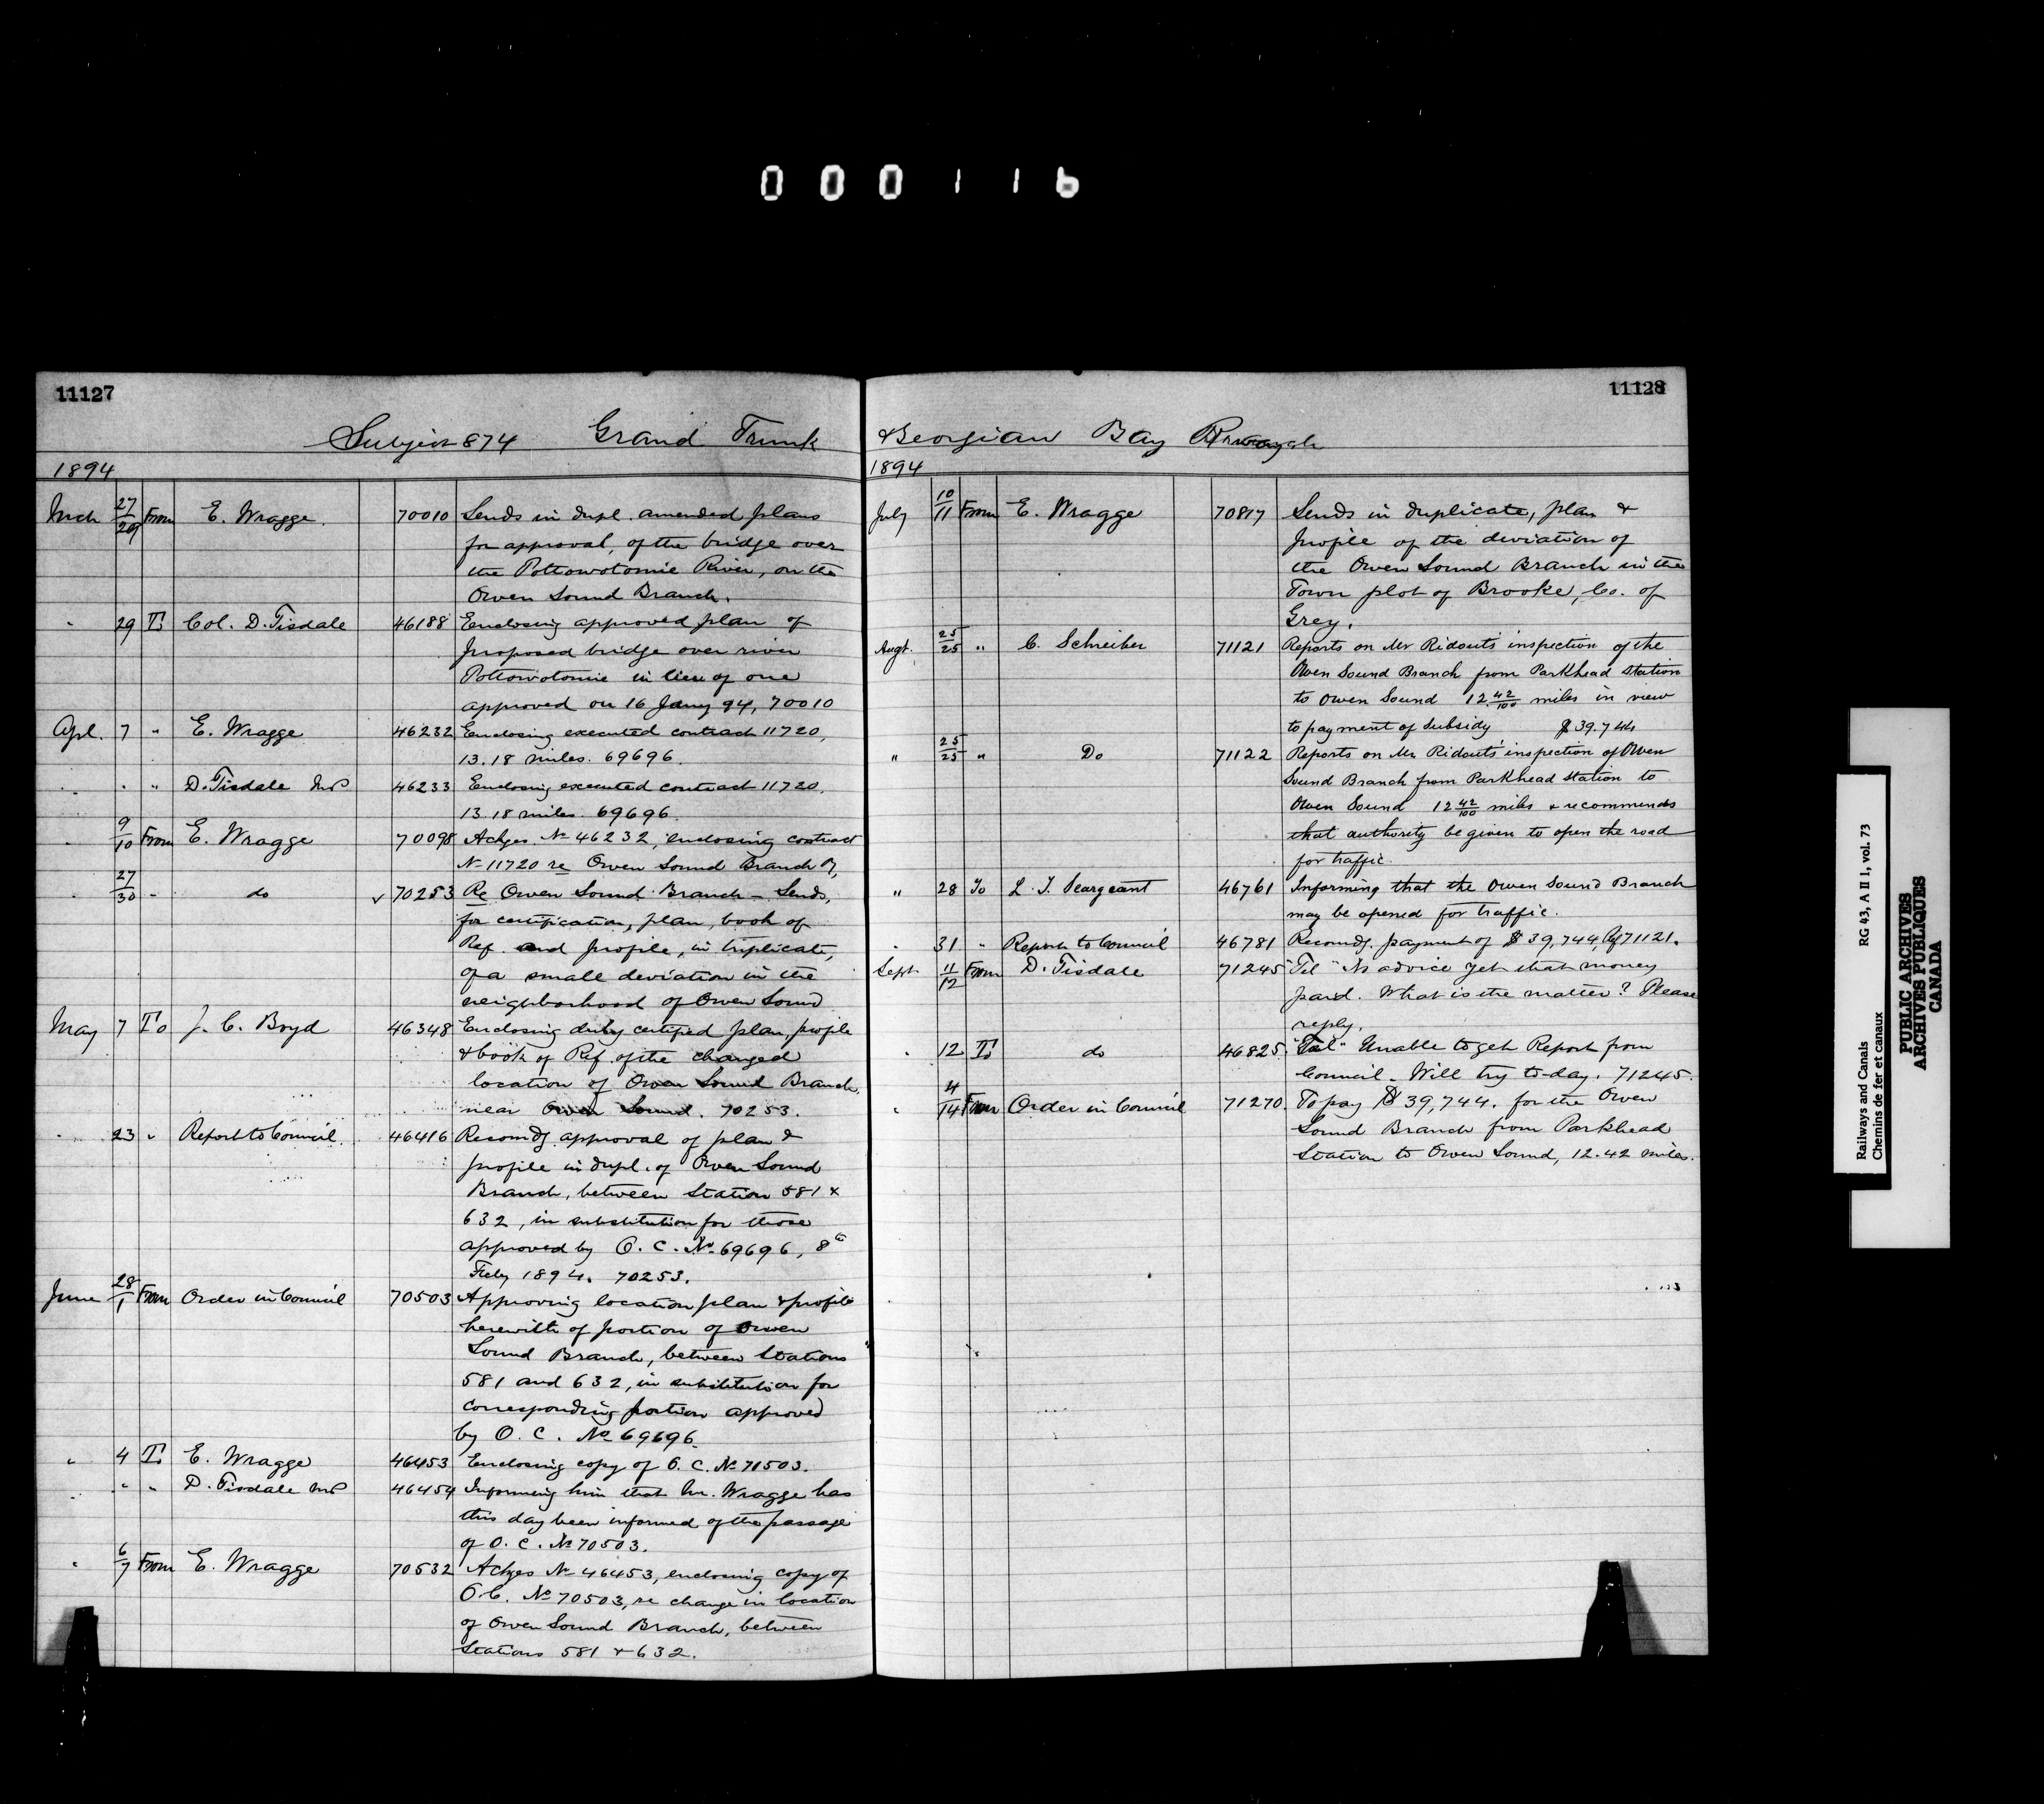 000116
11127
Subject 874 Grand Trunk
1894
Mch 27/29 From E. Wragge. 70010 Sends in dupl. amended plans
for approval, of the bridge over
the Pottowotomie River, on the
Owen Sound Branch.
" 29 To Col. D. Tisdale 46188 Enclosing approved plan of
proposed bridge over river
Pottowotomie in lieu of one
approved on 16 Jany 94, 70010
Apl. 7 " E. Wragge 46232 Enclosing executed contract 11720,
13.18 miles. 69696.
" " " D. Tisdale MP 46233 Enclosing executed contract 11720.
13.18 miles. 69696.
" 9/10 From E. Wragge 70098 Ackges. No 46232, enclosing contract
No 11720 re Owen Sound Branch Ry,
" 27/30 " do ✓ 70253 Re Owen Sound Branch – Sends,
for certification, plan, book of
Ref. and profile, in triplicate,
of a small deviation in the
neighborhood of Owen Sound
May 7 To J. C. Boyd 46348 Enclosing duly certified plan, profile
& book of Ref. of the changed
location of Owen Sound Branch,
near Owen Sound. 70253.
" 23 " Report to Council. 46416 Recomdg. approval of plan &
profile in dupl. of Owen Sound
Branch, between Station 581 &
632, in substitution for those
approved by O. C. No. 69696, 8th
Feby 1894. 70253.
June 28/1 From Order in Council 70503 Approving location plan & profile
herewith of portion of Owen
Sound Branch, between Stations
581 and 632, in substitution for
corresponding portion approved
by O. C. No 69696.
" 4 To E. Wragge 46453 Enclosing copy of O. C. No 71503.
" " " D. Tisdale MP 46454 Informing him that Mr. Wragge has
this day been informed of the passage
of O. C. No 70503.
" 6/7 From E. Wragge 70532 Ackges No 46453, enclosing copy of
O.C. No 70503, re change in location
of Owen Sound Branch, between
Stations 581 & 632.
11128
& Georgian Bay
1894
July 10/11 From E. Wragge 70817 Sends in duplicate, plan &
profile of the deviation of
the Owen Sound Branch in the
Town plot of Brooke, Co. of
Grey.
Augt. 25/25 " C. Schreiber 71121 Reports on Mr Ridout's inspection of the
Owen Sound Branch from Parkhead Station
to Owen Sound 12 42/100 miles in view
to payment of subsidy $39.744
" 25/25 " Do 71122 Reports on Mr Ridout's inspection of Owen
Sound Branch from Parkhead Station to
Owen Sound 12 42/100 miles & recommends
that authority be given to open the road
for traffic.
" 28 To L. J. Seargeant 46761 Informing that the Owen Sound Branch
may be opened for traffic.
" 31 " Report to Council 46781 Recomdg. payment of $39,744, 71121.
Sept. 11/12 From D. Tisdale 71245 "Tel" No advice yet that money
paid. What is the matter? Please
reply.
" 12 To do 46825 "Tel" Unable to get Report from
Council. Will try to-day. 71245.
" 4/14 From Order in Council 71270. To pay $39,744. for the Owen
Sound Branch from Parkhead
Station to Owen Sound, 12.42 miles.
Railways and Canals RG 43, A II 1, vol. 73
Chemins de fer et canaux
PUBLIC ARCHIVES
ARCHIVES PUBLIQUES
CANADA